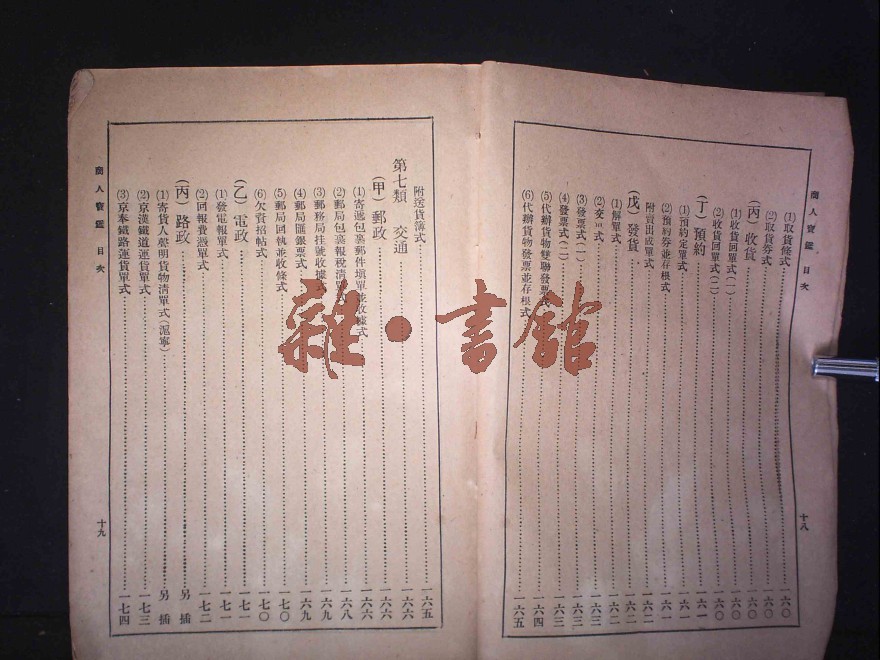 商人寶鑑 目次 十八
(1)取貨條式 一六〇
(2)取貨券式 一六〇
(丙)收貨 一六〇
(1)收貨回單式(一) 一六〇
(2)收貨回單式(二) 一六〇
(丁)預約 一六一
(1)預約定單式 一六一
(2)預約券並存根式 一六一
附賣出成單式 一六二
(戊)發貨 一六二
(1)解單式 一六二
(2)交單式 一六三
(3)發票式(一) 一六三
(4)發票式(二) 一六三
(5)代辦貨物雙聯發票式 一六四
(6)代辦貨物發票並存根式 一六五
附送貨簿式 一六五
第七類 交通 一六六
(甲)郵政 一六六
(1)寄遞包裹郵件填單並收據式 一六六
(2)郵局包裹報稅清單式 一六八
(3)郵務局挂號收據式 一六九
(4)郵局匯銀票式 一六九
(5)郵局回執並收條式 一七〇
(6)欠資招帖式 一七〇
(乙)電政 一七一
(1)發電報單式 一七一
(2)回報費憑單式 一七二
(丙)路政 另插
(1)寄貨人聲明貨物清單式(滬寧) 另插
(2)京漢鐵道運貨單式 一七三
(3)京奉鐵路運貨單式 一七四
商人寶鑑 目次 十九
雜·書館